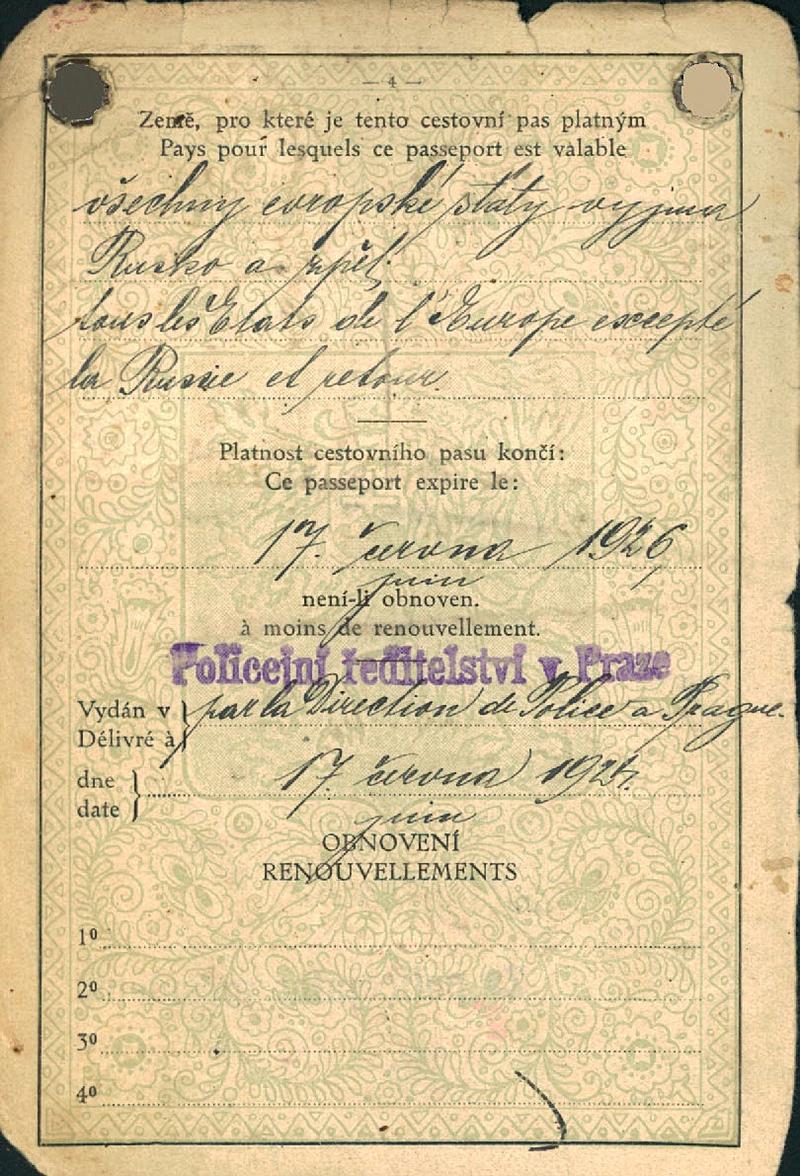 — 4 —
Země, pro které je tento cestovní pas platným
Pays pour lesquels ce passeport est valable
všechny evropské státy vyjma
Rusko a zpět.
tous les Etats de l'Europe excepté
la Russie et retour.
Platnost cestovního pasu končí:
Ce passeport expire le:
17. června 1926,
juin
není-li obnoven.
à moins de renouvellement.
Policejní ředitelství v Praze
Vydán v
Délivré à
par la Direction de Police a Prague.
dne
date
17. června
juin
OBNOVENÍ
RENOUVELLEMENTS
1º
2º
3º
4º